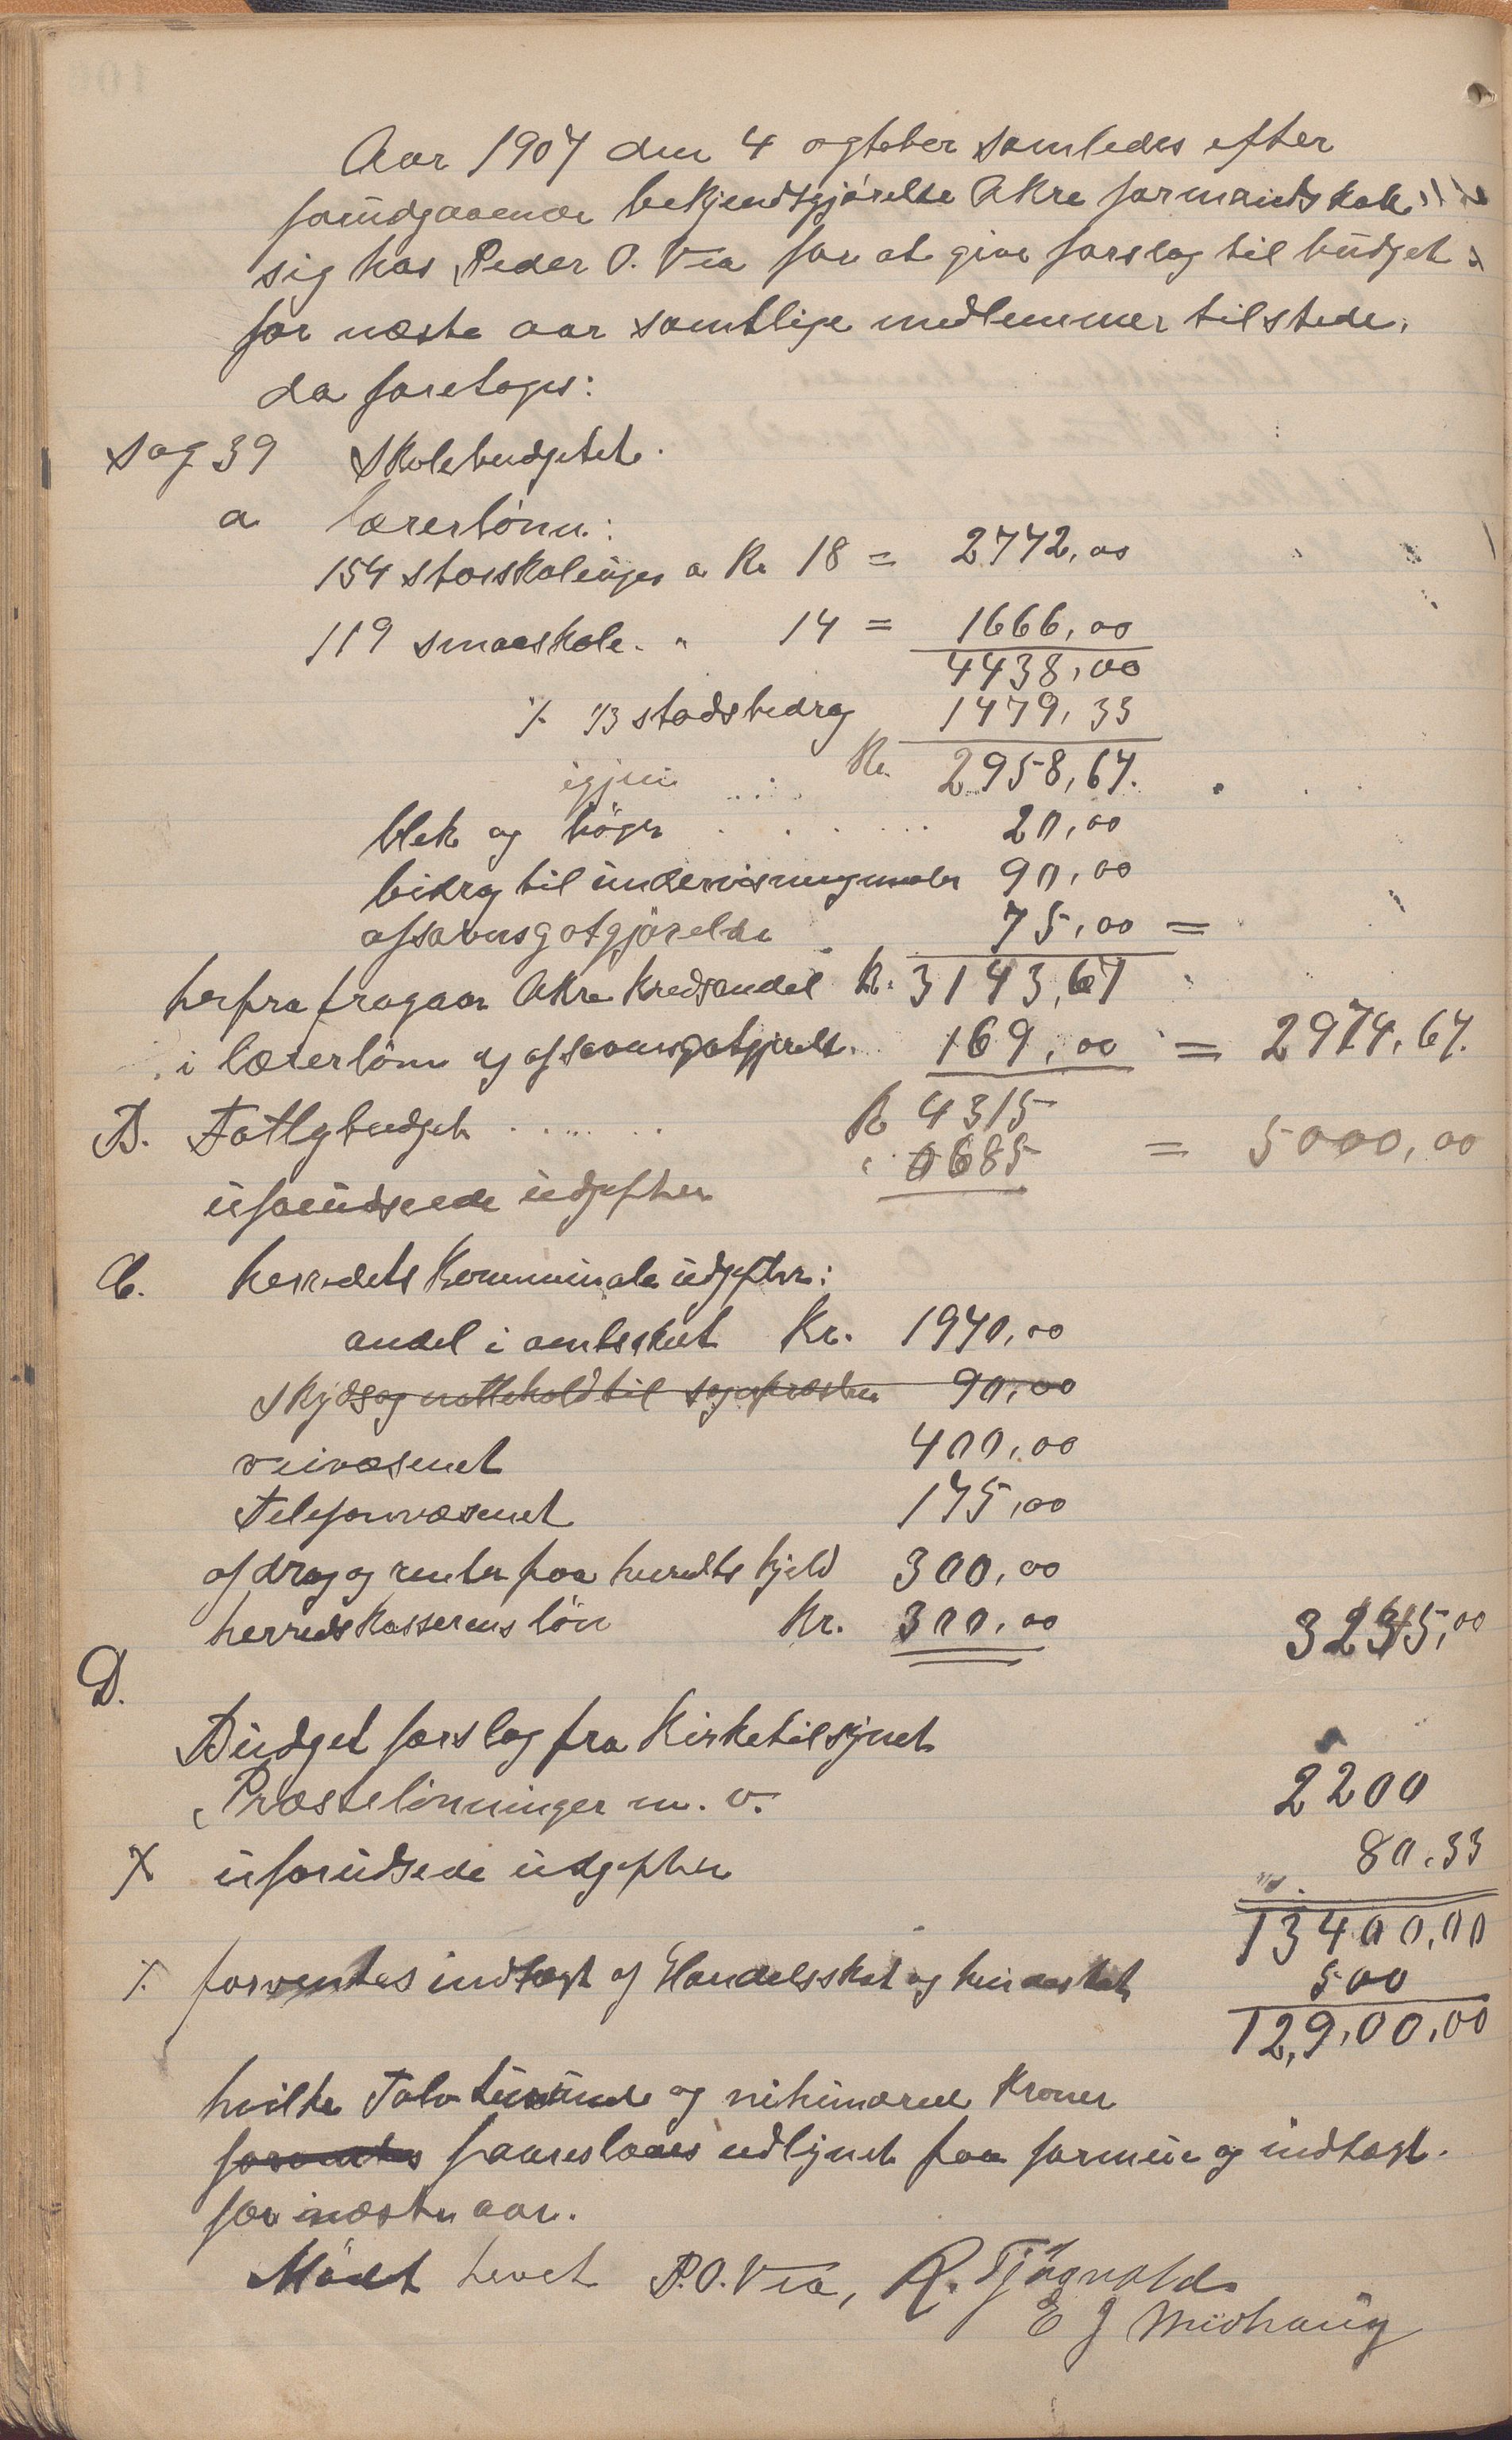 Aar 1907 den 4 ogtober samledes efter
forudgaaende bekjendtgjørelse Akre formandskab
sig hos Peder O. Vea for at give forslag til budget
for næste aar samtlige medlemmer tilstede.
da foretoges:
sag 39 Skolebudgetet.
a lærerlønn:
154 storskoleuger a Kr 18 = 2772,00
119 smaaskole. " 14 = 1666,00
4438,00
÷ 1/3 stadsbedrag 1479,33
igjen Kr. 2958,67.
blek og bøger 20,00
bidrag til undervisningmaler 90,00
afsavnsgotgjørelse 75,00 =
herfra fragaar Akre kredsandel Kr. 3143,67
i lærerlønn og afsavnsgotgjørelse 169,00 = 2974,67.
B. Fattigbudget Kr 4315
uforudseede udgifter 685 = 5000,00
C. herredets kommunale udgifter:
andel i amtsskat Kr. 1970,00
Skyds og natteholdtil sognpræsten 90,00
veivæsenet 400,00
Telefonvæsenet 175,00
afdrag og renter paa herredts gjeld 300,00
herredskasserens løn Kr. 300,00 3235,00
D.
Budget forslag fra Kirketilsynet
Præstelønninger m. v. 2200
X uforudsede udgifter 80.33
13400,00
÷ forventes indtægt af Handelsskat og 500
12,900,00
hvilke Tolv tusunde og nihundrede Kroner
foreslaaes udlignet paa formue og indtægt.
for næste aar.
Mødet hevet P.O. Vea, R. Tjøsvold
E J Midhaug